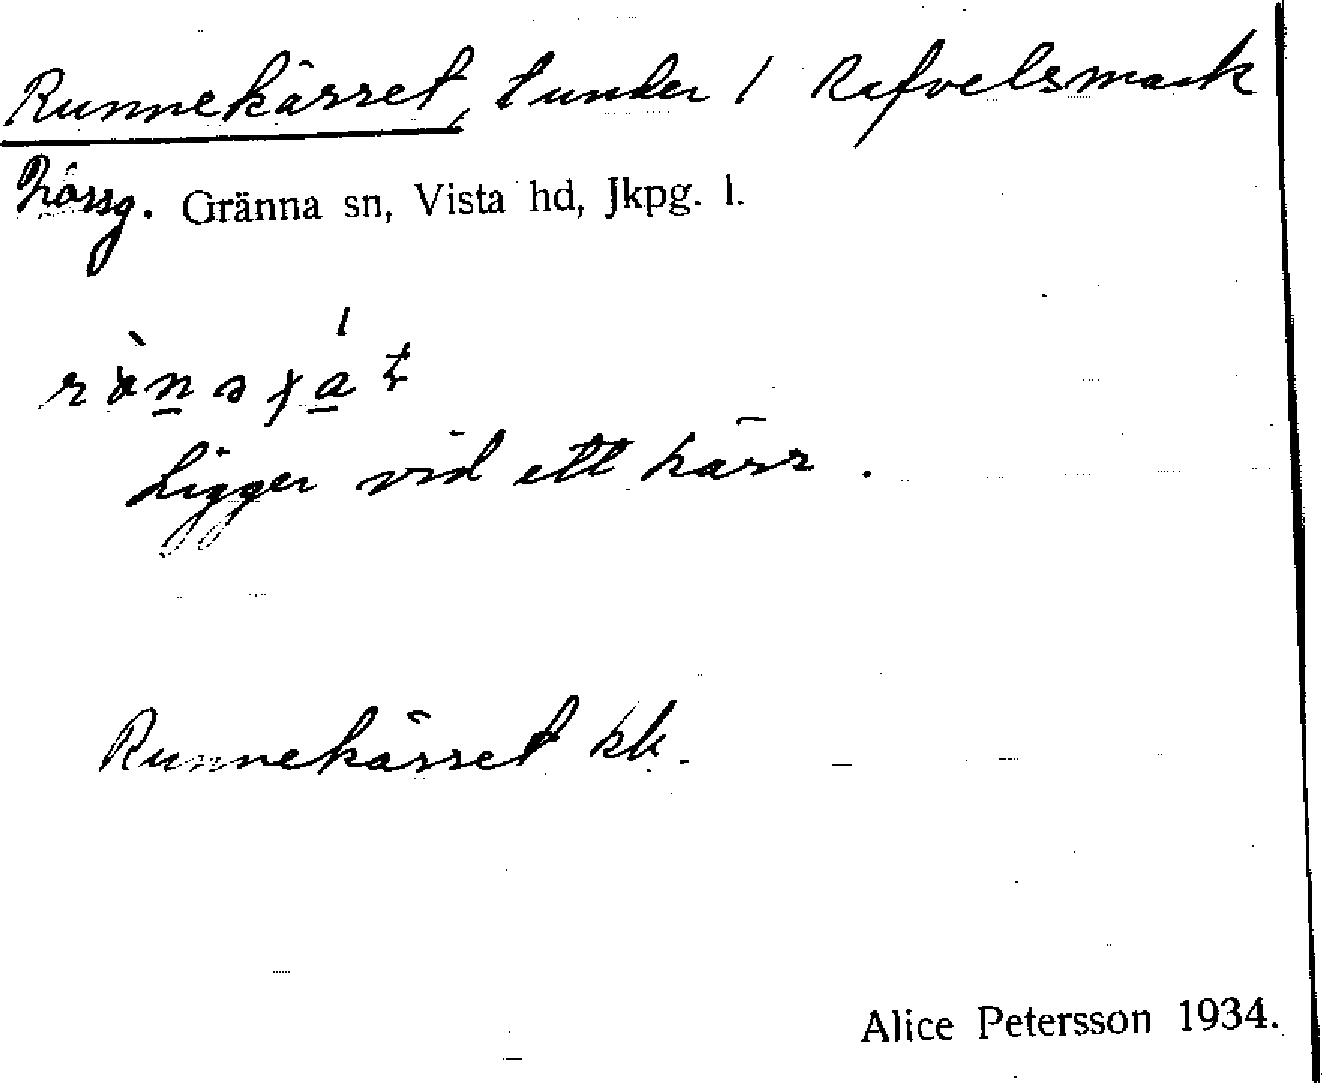 Runnekärret, t under 1 Rafvelsmark
Gränna sn, Vista hd, Jkpg. l.
Ligger vid ett kärr.
Runnekärret kk.
Alice Petersson 1934.